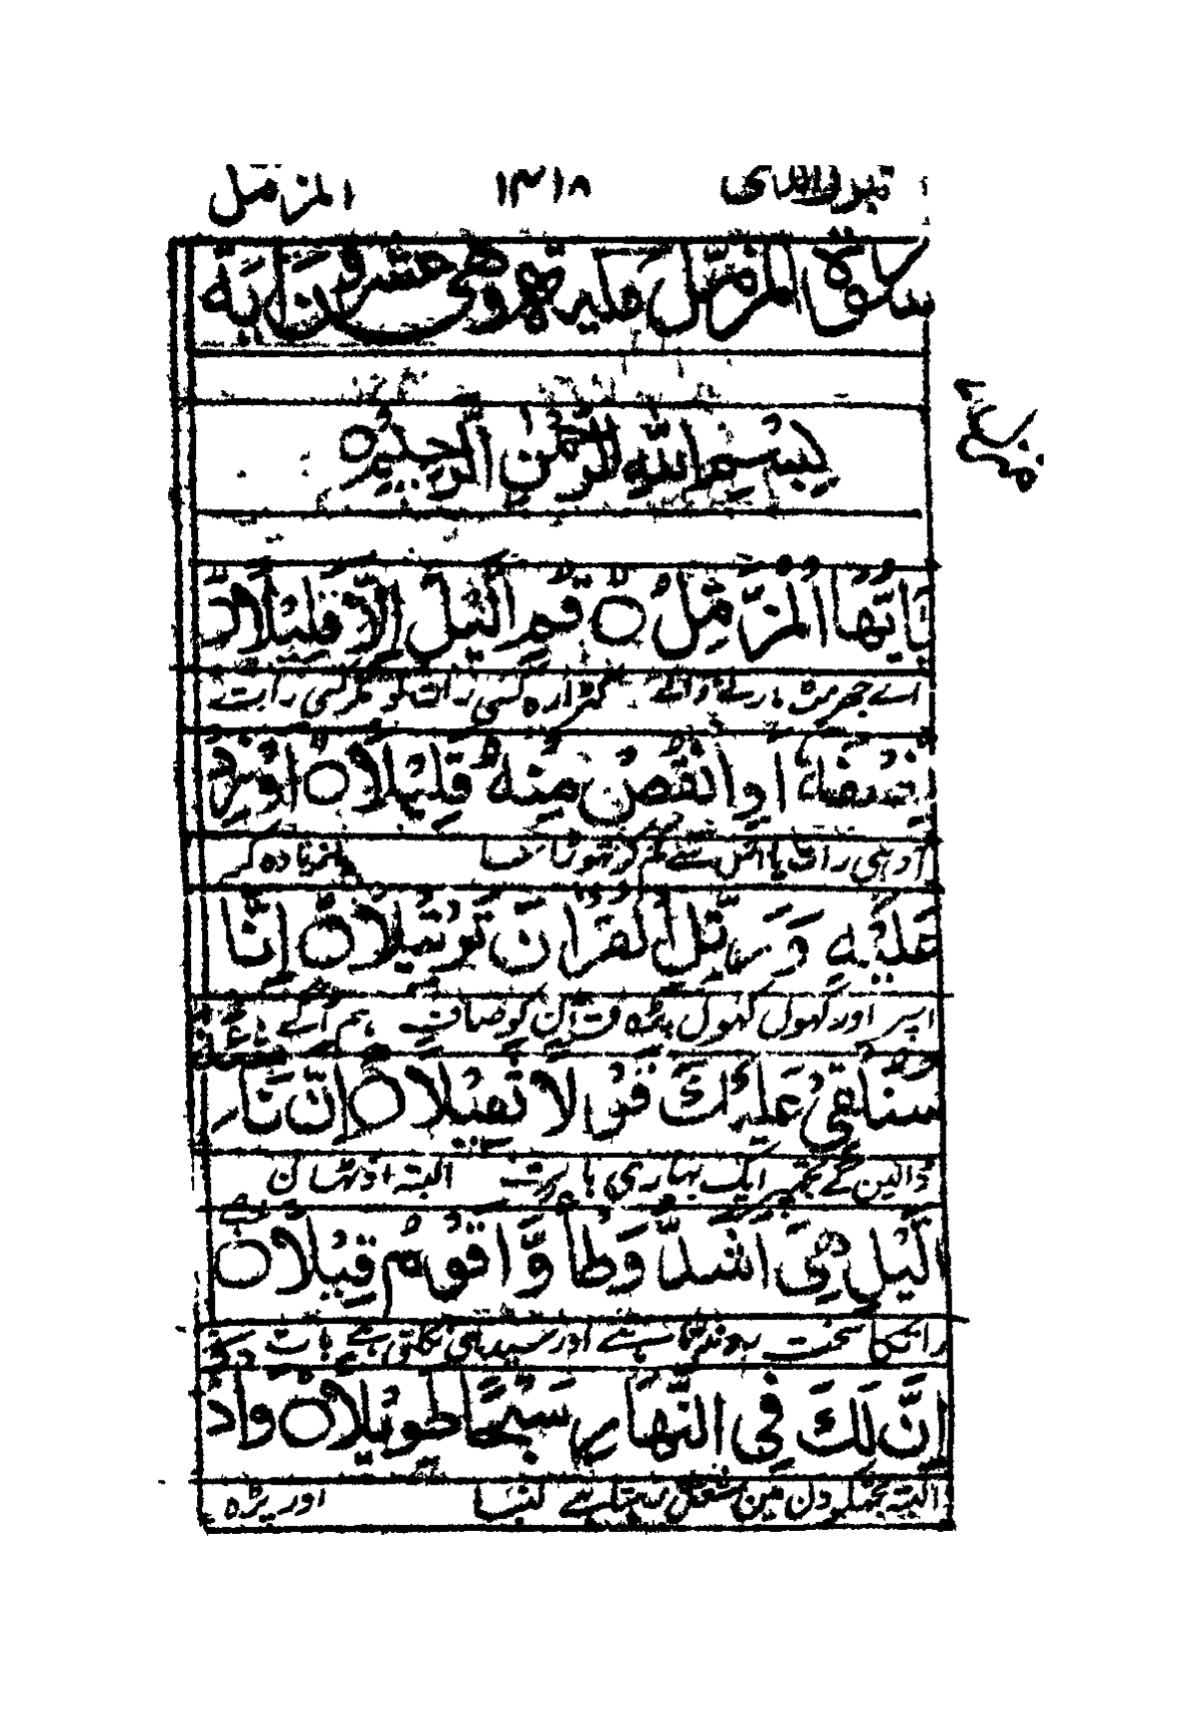 تبٰرک الذی ۱۴۱۸ المزمّل
سُوۡرَۃُ الۡمُزَّمِّلِ مَکِّیَّۃٌ وَّهِیَ عِشۡرُوۡنَ اٰیَةً
بِسۡمِ اللّٰهِ الرَّحۡمٰنِ الرَّحِیۡمِ ○
یٰۤاَیُّهَا الۡمُزَّمِّلُ ○ قُمِ الَّیۡلَ اِلَّا قَلِیۡلًا ○
اے جھرمٹ مارنے والے کھڑا رہ کسی رات کو مگر کسی رات
نِّصۡفَهٗۤ اَوِ انۡقُصۡ مِنۡهُ قَلِیۡلًا ○ اَوۡ زِدۡ
آدہی رات یا اس سے کم کر تھوڑا سا یا زیادہ کر
عَلَیۡهِ وَ رَتِّلِ الۡقُرۡاٰنَ تَرۡتِیۡلًا ○ اِنَّا
اسپر اور کھول کھول پڑہ قرآن کو صاف ہم آگے
سَنُلۡقِیۡ عَلَیۡکَ قَوۡلًا ثَقِیۡلًا ○ اِنَّ نَا
ڈالین گے تجھ پر ایک بہاری بات البتہ اوٹھان
الَّیۡلِ هِیَ اَشَدُّ وَطۡاً وَّ اَقۡوَمُ قِیۡلًا ○
رات کا سخت روندتا ہے اور سیدہی نکلتی ہے بات
اِنَّ لَکَ فِی النَّهَارِ سَبۡحًا طَوِیۡلًا ○ وَ اذۡ
البتہ تجھکو دن مین شغل رہتا ہے لنبا اور پڑہ